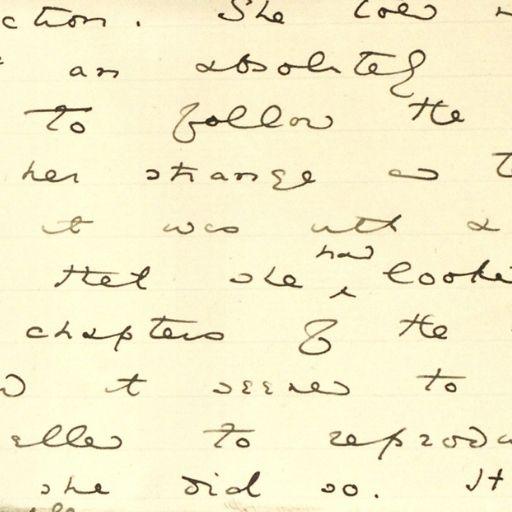 ction. She told
an absolutely
to follow the
her strange as
it was with a
that she had looke
chapters of the
it seemed to
elled to reprodu
she did so. It